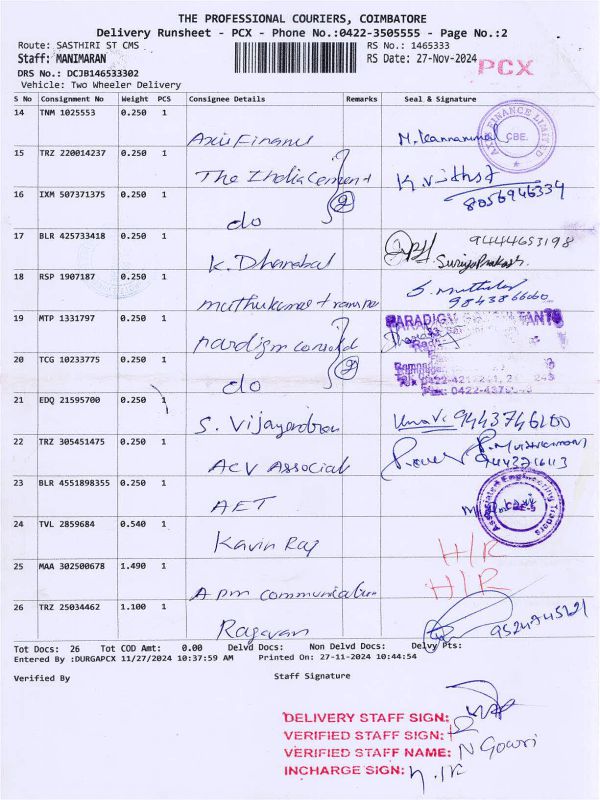 THE PROFESSIONAL COURIERS, COIMBATORE
Delivery Runsheet - PCX - Phone No.:0422-3505555 - Page No.:2
Route: SASTHIRI ST CMS RS No.: 1465333
Staff: MANIMARAN RS Date: 27-Nov-2024
PCX
DRS No.: DCJB146533302
Vehicle: Two Wheeler Delivery
S No Consignment No Weight PCS Consignee Details Remarks Seal & Signature
14 TNM 1025553 0.250 1 Axis Finance M. Kannammal
AXIS FINANCE LIMITED CBE.
15 TRZ 220014237 0.250 1 The India Cement
8056946334
16 IXM 507371375 0.250 1 do 2
17 BLR 425733418 0.250 1 K. Dhanabal 9444653198
Suriya Prakash
18 RSP 1907187 0.250 1 muthukumar transpo
9843866060
19 MTP 1331797 0.250 1 paradigm consult
PARADIGM CONSULTANTS
20 TCG 10233775 0.250 1 do 2
21 EDQ 21595700 0.250 1 S. Vijayendran Uma V. 9443746200
22 TRZ 305451475 0.250 1 ACV Associal
23 BLR 4551898355 0.250 1 AET
Associated Engineering Traders
24 TVL 2859684 0.540 1 Kavin Raj H/R
25 MAA 302500678 1.490 1 Apm communication H/R
26 TRZ 25034462 1.100 1 Ragavan
Tot Docs: 26 Tot COD Amt: 0.00 Delvd Docs: Non Delvd Docs: Delvy Pts:
Entered By :DURGAPCX 11/27/2024 10:37:59 AM Printed On: 27-11-2024 10:44:54
Verified By Staff Signature
DELIVERY STAFF SIGN:
VERIFIED STAFF SIGN:
VERIFIED STAFF NAME: N Gowri
INCHARGE SIGN: